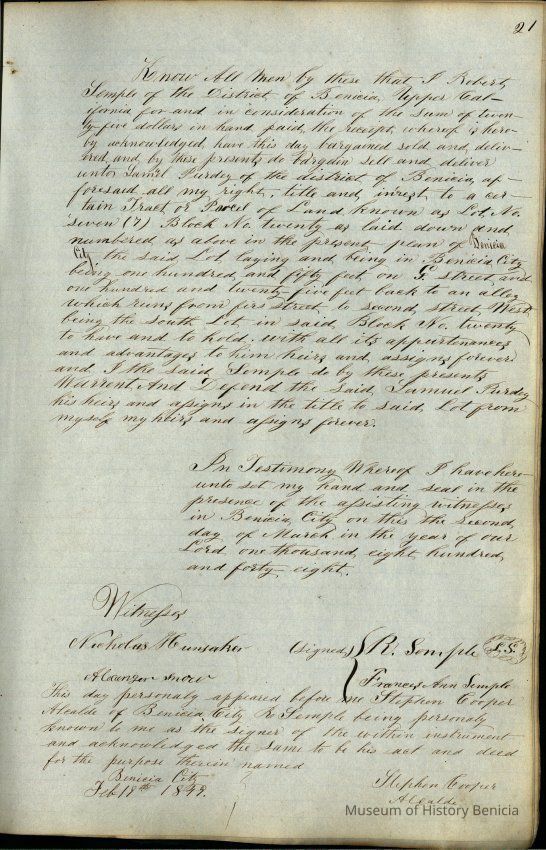 21
Know All Men by these that I Robert
Semple of the District of Benicia, Upper Cal-
ifornia for and in consideration of the Sum of twen-
ty five dollars in hand paid, the receipt, whereof is here-
by acknowledged, have this day bargained sold and deliv-
ered, and, by these presents, do bargain sell and deliver
unto Saml Purdey of the district of Benicia, af-
foresaid all my right, title and, intrest, to a cer-
tain Tract, or Parcel of Land known as Lot, No.
seven (7) Block No. twenty as laid down and,
numbered, as above in the present, plan of Benicia
City the said, Lot, laying and being in Benicia City
being one hundred, and fifty feet, on G street and
one hundred and twenty-five feet back to an alley
which runs from first Street, to second, street, West
being the South Lot, in said, Block No. twenty
to have and to hold, with all its appurtinances
and advantages to him heirs and, assigns forever
and I the said, Semple do by these presents,
Warrent, And Defend the said, Samuel Purdey
his heirs and assigns in the title to said, Lot from
myself my heirs and assigns forever.
In Testimony Whereof I have here-
unto set my hand and seal in the
presence of the assisting witnesses
in Benicia City on this the second,
day of March in the year of our
Lord, one thousand, eight hundred,
and forty eight.
Witnesses
Nicholas Hunsaker (signed) R. Semple L.S.
Snow Frances Ann Semple
This day personaly appeared before me Stephen Cooper
Alcalde of Benicia City R Semple being personaly
known to me as the signer of the within instrument
and acknowledged the same to be his act and deed
for the purpose therein named
Benicia City
Feb 19th 1849. Stephen Cooper
Alcalde
Museum of History Benicia